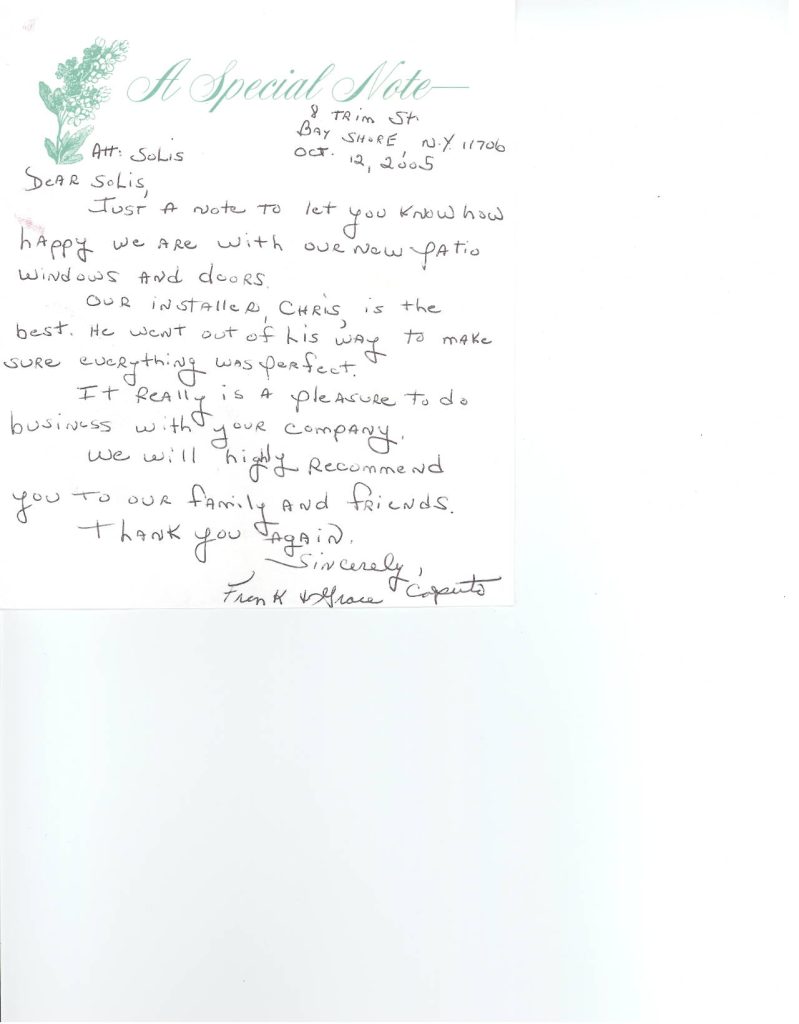 A Special Note—
8 Trim St.
Bay Shore, N.Y. 11706
Oct. 12, 2005
Att: Solis
Dear Solis,
Just a note to let you know how
happy we are with our new patio
windows and doors.
Our installer, Chris, is the
best. He went out of his way to make
sure everything was perfect.
It really is a pleasure to do
business with your company.
We will highly recommend
you to our family and friends.
Thank you again.
Sincerely,
Frank & Grace Caputo